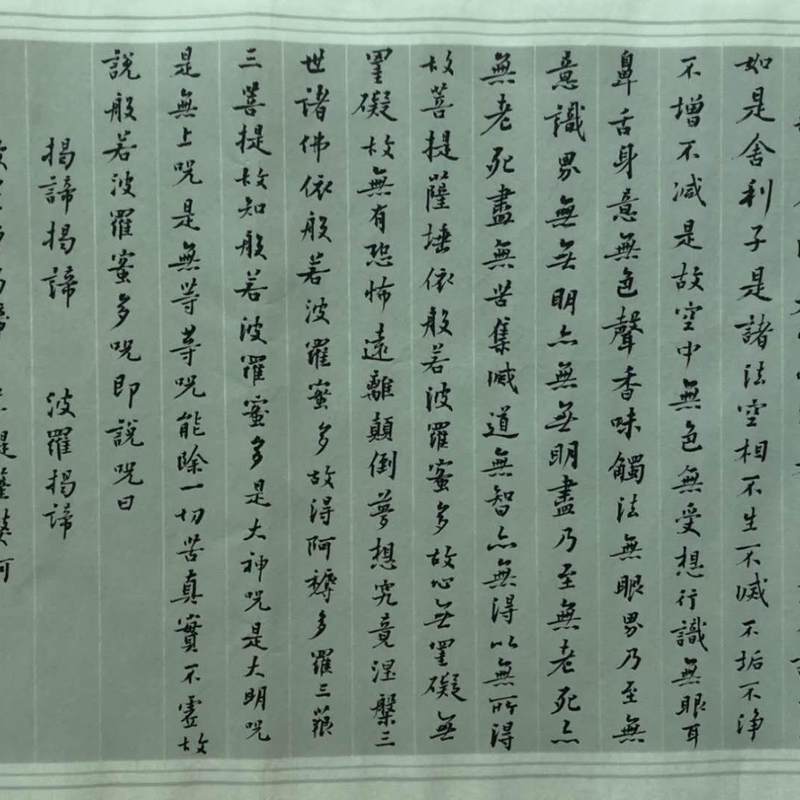 如是舍利子是諸法空相不生不滅不垢不净
不增不減是故空中無色無受想行識無眼耳
鼻舌身意無色聲香味觸法無眼界乃至無
意識界無無明亦無無明盡乃至無老死亦
無老死盡無苦集滅道無智亦無得以無所得
故菩提薩埵依般若波羅蜜多故心無罣礙無
罣礙故無有恐怖遠離顛倒夢想究竟涅槃三
世諸佛依般若波羅蜜多故得阿耨多羅三藐
三菩提故知般若波羅蜜多是大神咒是大明咒
是無上咒是無等等咒能除一切苦真實不虛故
說般若波羅蜜多咒即說咒曰
揭諦揭諦 波羅揭諦